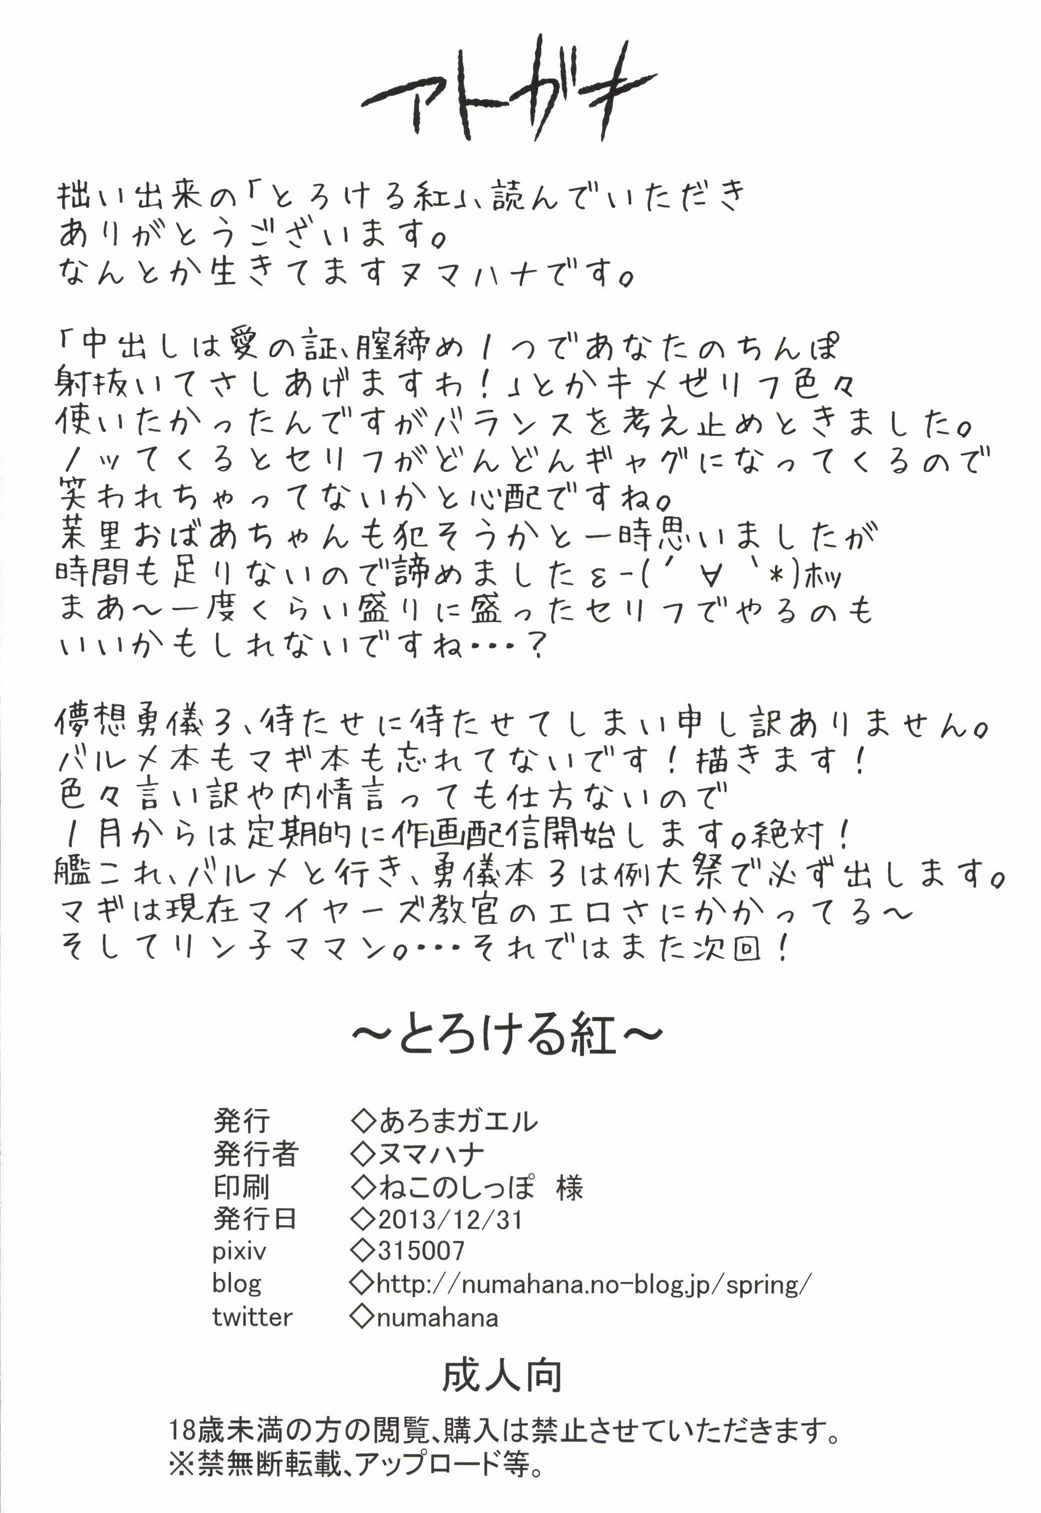 アトガキ
拙い出来の「とろける紅」、読んでいただき
ありがとうございます。
なんとか生きてますヌマハナです。
「中出しは愛の証、膣締め1つであなたのちんぽ
射抜いてさしあげますわ!」とかキメゼリフ色々
使いたかったんですがバランスを考え止めときました。
ノッてくるとセリフがどんどんギャグになってくるので
笑われちゃってないかと心配ですね。
茉里おばあちゃんも犯そうかと一時思いましたが
時間も足りないので諦めましたε-(´∀｀*)ホッ
まあ〜一度くらい盛りに盛ったセリフでやるのも
いいかもしれないですね・・・?
儚想勇儀3、待たせに待たせてしまい申し訳ありません。
バルメ本もマギ本も忘れてないです!描きます!
色々言い訳や内情言っても仕方ないので
1月からは定期的に作画配信開始します。絶対!
艦これ、バルメと行き、勇儀本3は例大祭で必ず出します。
マギは現在マイヤーズ教官のエロさにかかってる〜
そしてリン子ママン。・・・それではまた次回!
〜とろける紅〜
発行 ◇あろまガエル
発行者 ◇ヌマハナ
印刷 ◇ねこのしっぽ 様
発行日 ◇2013/12/31
pixiv ◇315007
blog ◇http://numahana.no-blog.jp/spring/
twitter ◇numahana
成人向
18歳未満の方の閲覧、購入は禁止させていただきます。
※禁無断転載、アップロード等。